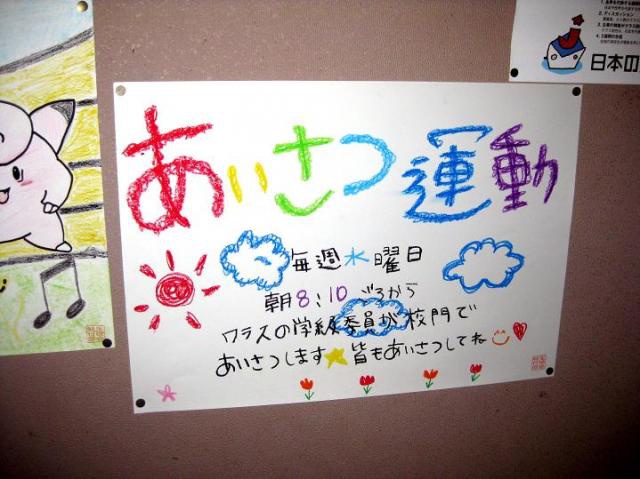 あいさつ運動
毎週水曜日
朝8:10ごろから
クラスの学級委員が校門で
あいさつします★皆もあいさつしてね
日本の